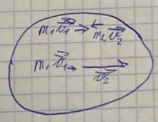 m₁v⃗₁ → ← m₂v⃗₂
m₁v⃗₁ → v⃗₂